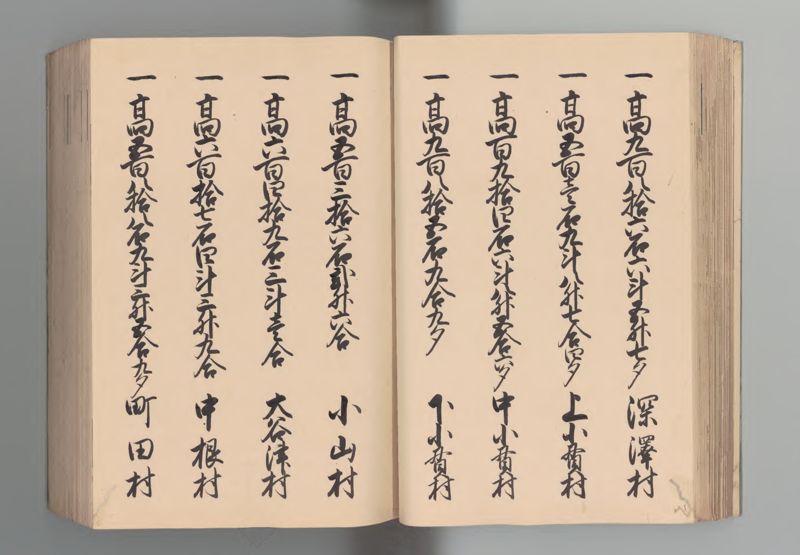 一 高九百八拾六石六斗五升七夕 深澤村
一 高五百壱石九斗八升七合四夕 上小曽村
一 高百九拾四石六斗八升五合六夕 中小曽村
一 高九百八拾五石九合九夕 下小曽村
一 高五百三拾六石弐升六合 小山村
一 高六百四拾九石三斗壱合 大谷津村
一 高六百拾七石四斗三升九合 中根村
一 高五百八拾八石九斗三升五合九夕 町田村